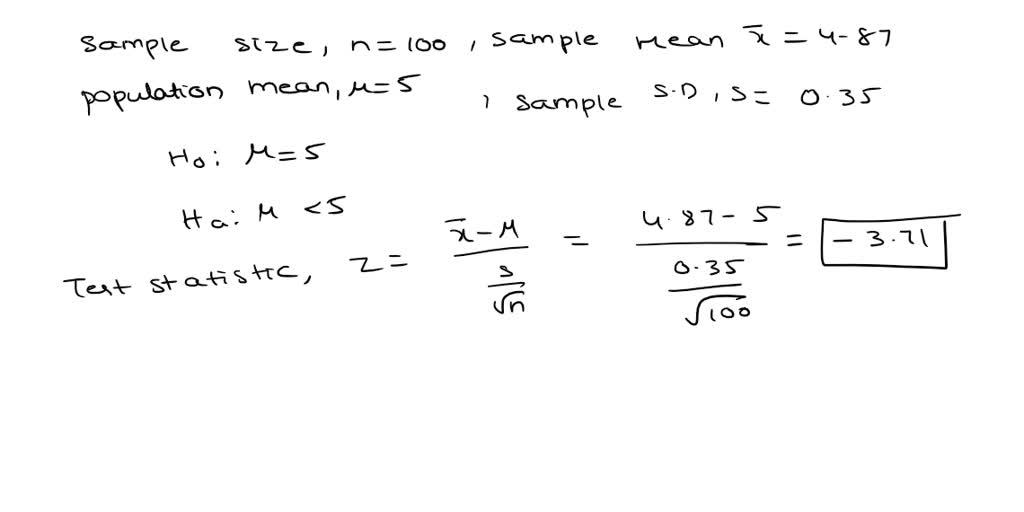 Sample size, n=100, sample mean x̄ = 4.87
population mean, μ=5, sample S.D, S= 0.35
H₀: μ=5
Ha: μ <5
Test statistic, Z = (x̄-μ)/(s/√n) = (4.87-5)/(0.35/√100) = -3.71